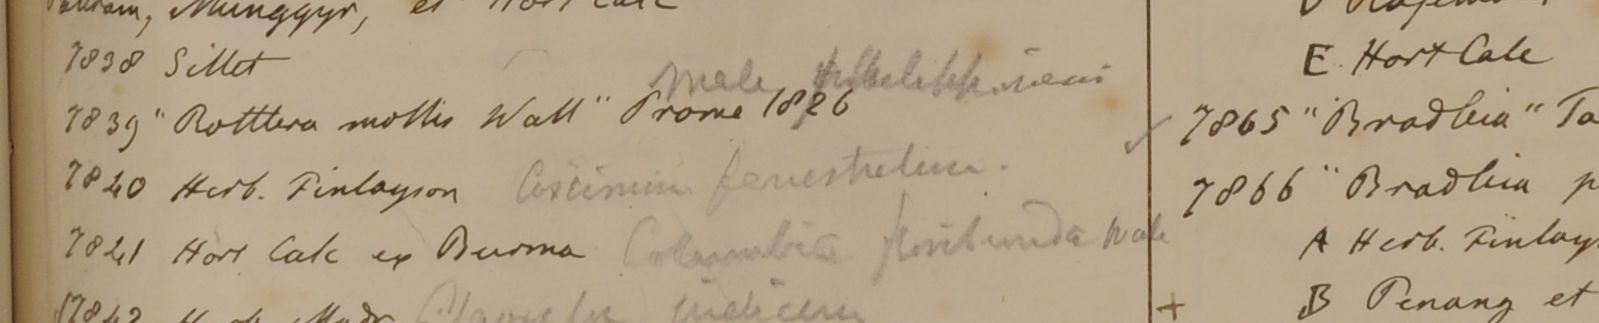 Munggyr, et Hort Calc
7838 Sillet
Male
7839 "Rottlera mollis Wall" Prome 1826
7840 Herb. Finlayson Coscinium fenestratum.
7841 Hort Calc ex Burma Columbia floribunda Wall
7842 Herb. Madr indicum
E. Hort Calc
7865 "Bradleia"
7866 "Bradleia
A Herb. Finlays
+ B Penang et